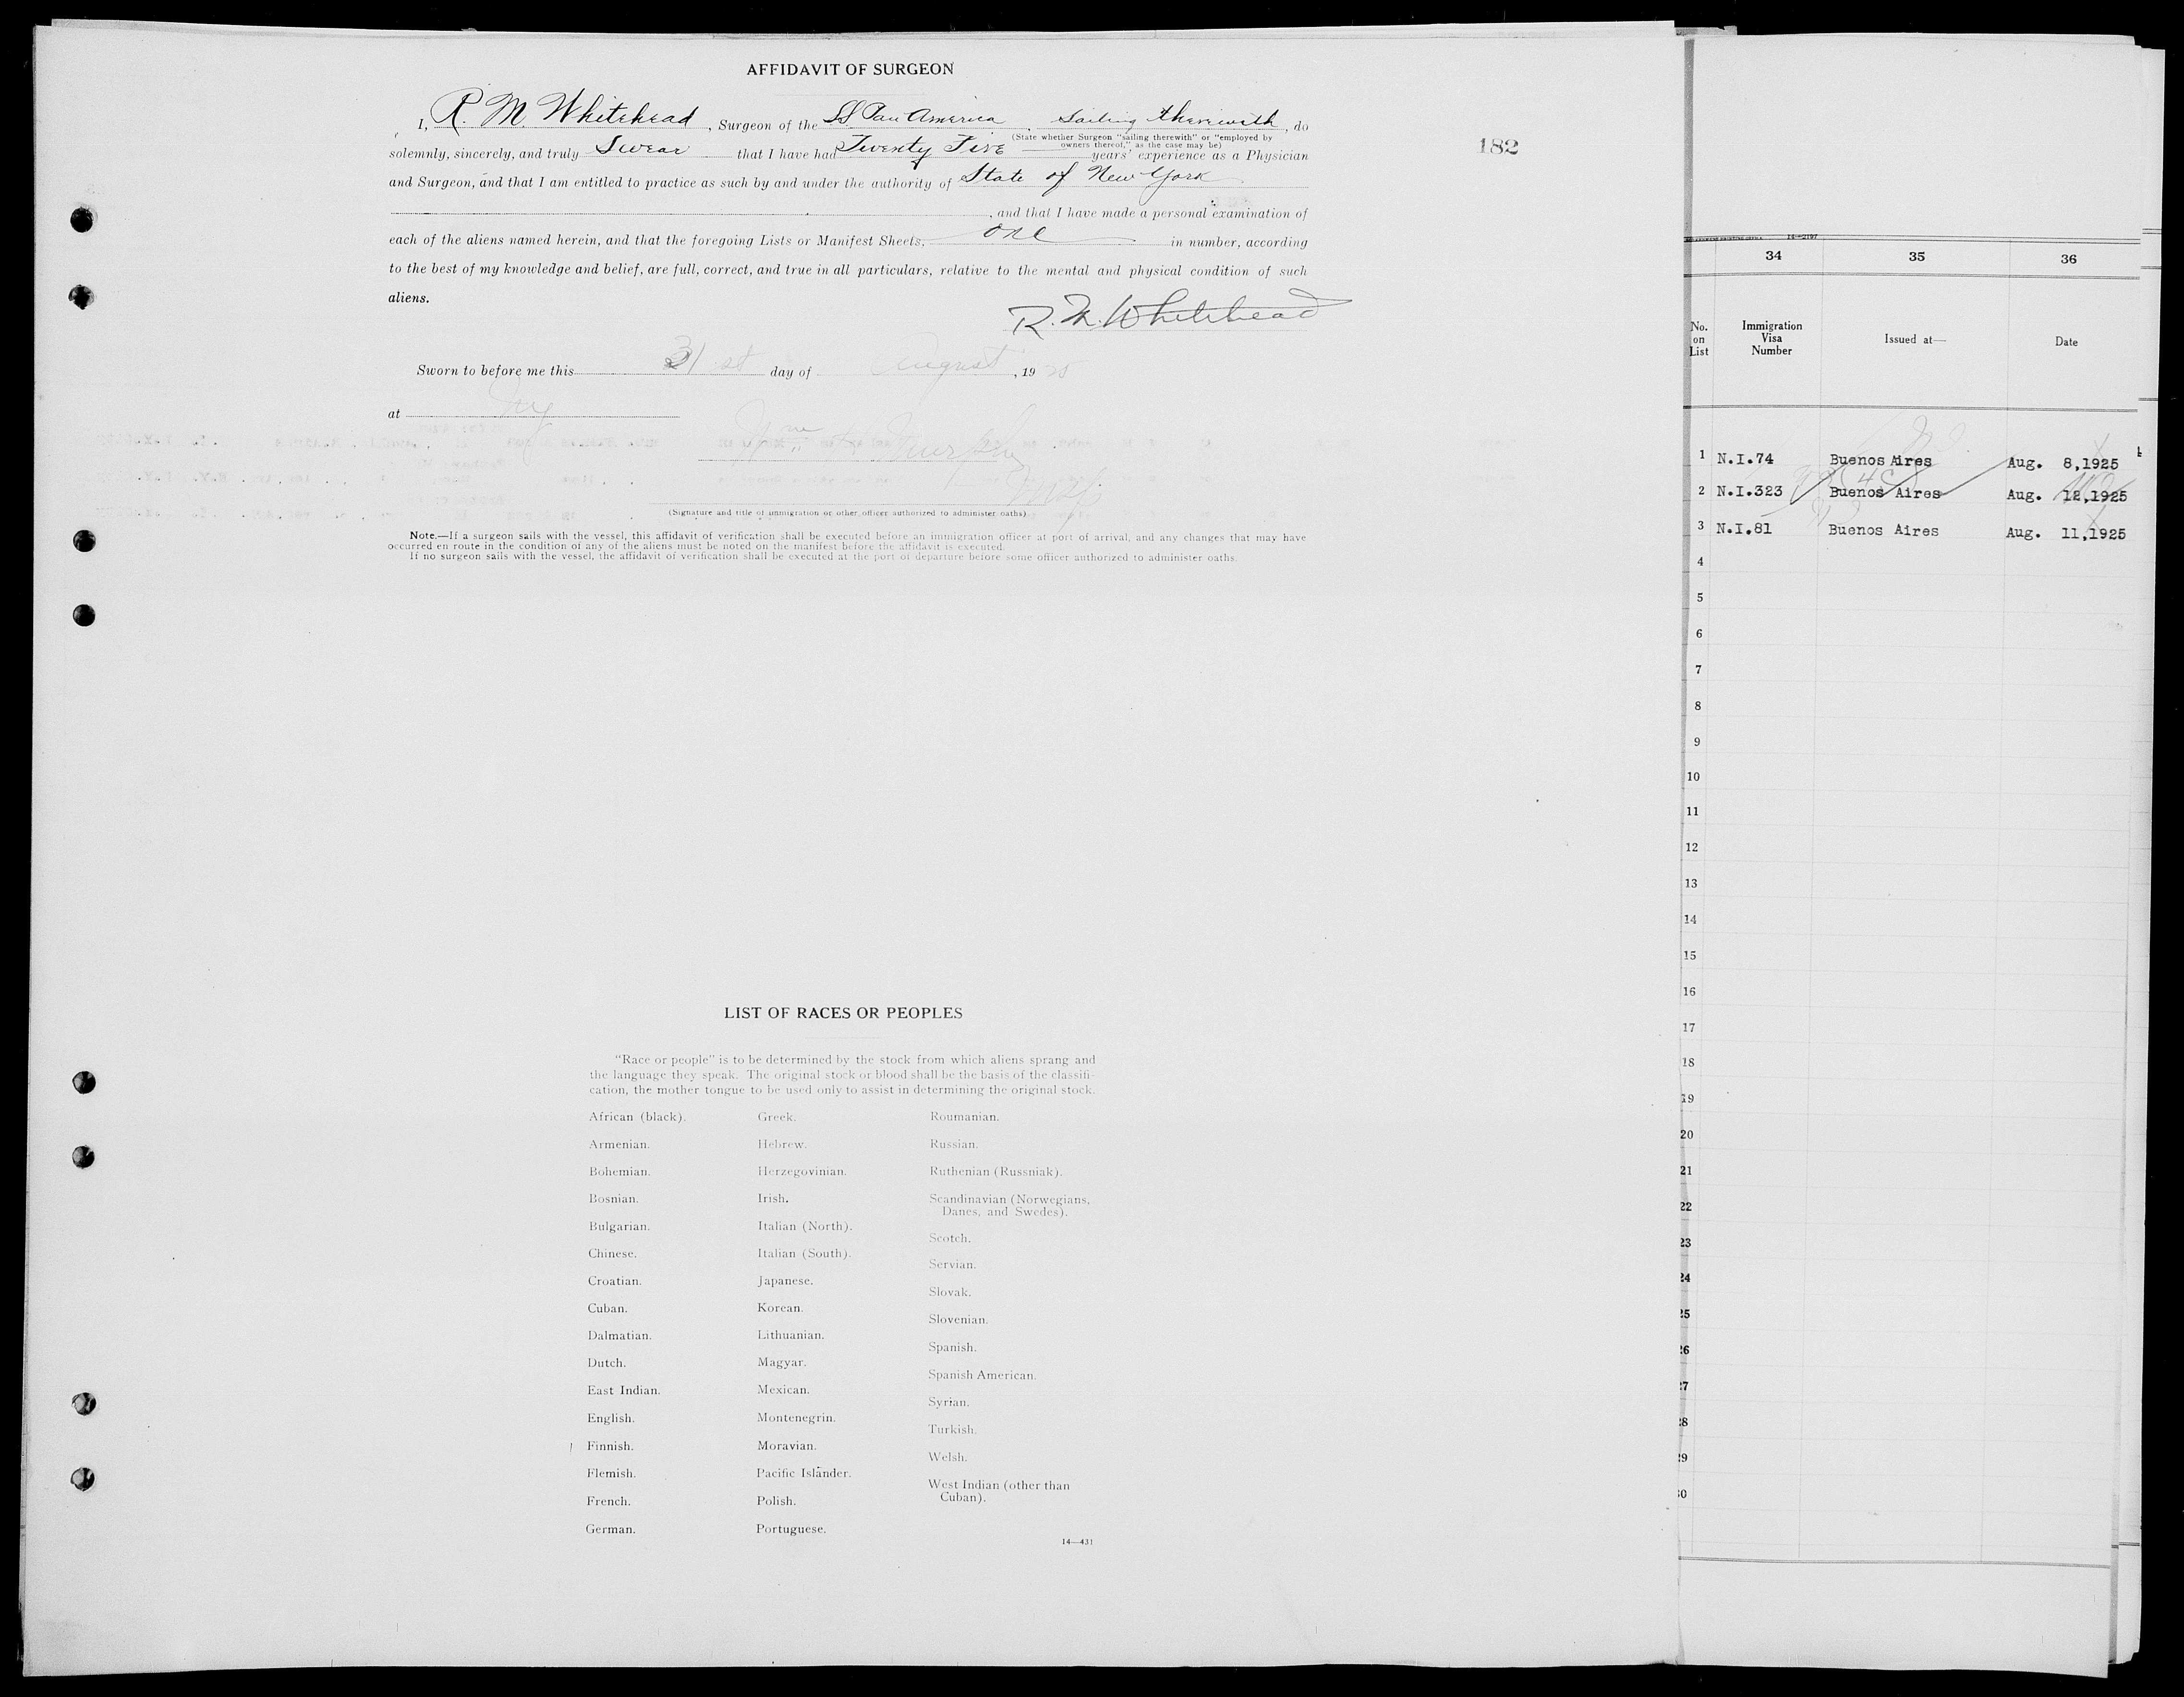 AFFIDAVIT OF SURGEON
I, R. M. Whitehead, Surgeon of the SS Pan America, Sailing therewith, do
(State whether Surgeon "sailing therewith" or "employed by
owners thereof," as the case may be)
solemnly, sincerely, and truly Swear that I have had Twenty Five years' experience as a Physician
and Surgeon, and that I am entitled to practice as such by and under the authority of State of New York
, and that I have made a personal examination of
each of the aliens named herein, and that the foregoing Lists or Manifest Sheets, one in number, according
to the best of my knowledge and belief, are full, correct, and true in all particulars, relative to the mental and physical condition of such
aliens.
R. M. Whitehead
Sworn to before me this 31st day of August, 1925
at NY
(Signature and title of immigration or other officer authorized to administer oaths)
Note.—If a surgeon sails with the vessel, this affidavit of verification shall be executed before an immigration officer at port of arrival, and any changes that may have
occurred en route in the condition of any of the aliens must be noted on the manifest before the affidavit is executed.
If no surgeon sails with the vessel, the affidavit of verification shall be executed at the port of departure before some officer authorized to administer oaths.
LIST OF RACES OR PEOPLES
"Race or people" is to be determined by the stock from which aliens sprang and
the language they speak. The original stock or blood shall be the basis of the classifi-
cation, the mother tongue to be used only to assist in determining the original stock.
African (black).
Armenian.
Bohemian.
Bosnian.
Bulgarian.
Chinese.
Croatian.
Cuban.
Dalmatian.
Dutch.
East Indian.
English.
Finnish.
Flemish.
French.
German.
Greek.
Hebrew.
Herzegovinian.
Irish.
Italian (North).
Italian (South).
Japanese.
Korean.
Lithuanian.
Magyar.
Mexican.
Montenegrin.
Moravian.
Pacific Islander.
Polish.
Portuguese.
Roumanian.
Russian.
Ruthenian (Russniak).
Scandinavian (Norwegians,
Danes, and Swedes).
Scotch.
Servian.
Slovak.
Slovenian.
Spanish.
Spanish American.
Syrian.
Turkish.
Welsh.
West Indian (other than
Cuban).
14—431
182
34 35 36
No. on List Immigration Visa Number Issued at— Date
1 N.I.74 Buenos Aires Aug. 8,1925
2 N.I.323 Buenos Aires Aug. 12,1925
3 N.I.81 Buenos Aires Aug. 11,1925
4
5
6
7
8
9
10
11
12
13
14
15
16
17
18
19
20
21
22
23
24
25
26
27
28
29
30